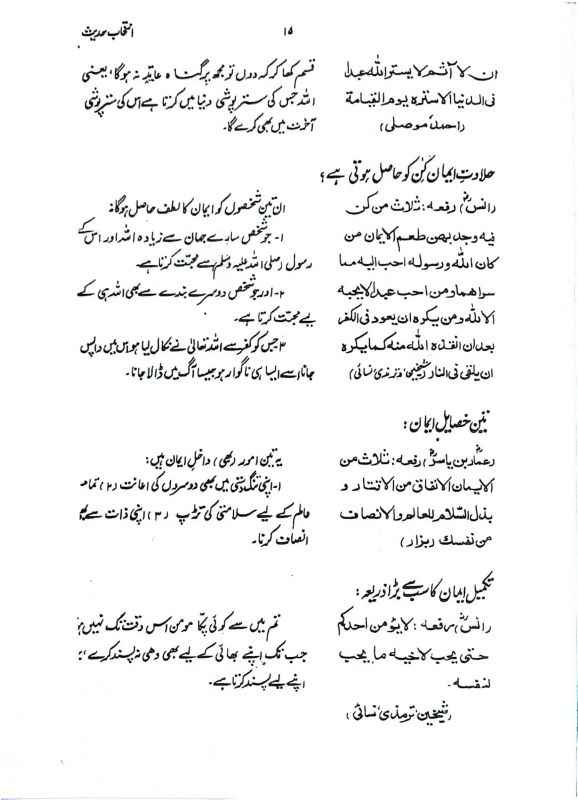 انتخاب حدیث
۱۵
ان لا آثم لا یستر اللہ عبدا
فی الدنیا الا سترہ یوم القیامۃ
(احمد، موصلی)
قسم کھا کر کہہ دوں تو مجھ پر گناہ عاید نہ ہوگا، یعنی
اللہ جس کی ستر پوشی دنیا میں کرتا ہے اس کی ستر پوشی
آخرت میں بھی کرے گا۔
حلاوتِ ایمان کن کو حاصل ہوتی ہے؟
(انسؓ) رفعہ: ثلاث من کن
فیہ وجد بھن طعم الایمان من
کان اللہ ورسولہ احب الیہ مما
سواھما ومن احب عبدا لا یحبہ
الا للہ ومن یکرہ ان یعود فی الکفر
بعد ان انقذہ اللہ منہ کما یکرہ
ان یلقی فی النار (شیخین، ترمذی، نسائی)
ان تین شخصوں کو ایمان کا لطف حاصل ہوگا:
۱- جو شخص سارے جہان سے زیادہ اللہ اور اس کے
رسول (صلی اللہ علیہ وسلم) سے محبت کرتا ہے۔
۲- اور جو شخص دوسرے بندے سے بھی اللہ ہی کے
لیے محبت کرتا ہے۔
۳ جس کو کفر سے اللہ تعالیٰ نے نکال لیا ہو اس میں واپس
جانا اسے ایسا ہی ناگوار ہو جیسا آگ میں ڈالا جانا۔
تین خصایل ایمان:
(عمار بن یاسرؓ) رفعہ: ثلاث من
الایمان الانفاق من الاقتار و
بذل السلام للعالم والانصاف
من نفسک (بزار)
یہ تین امور (بھی) داخل ایمان ہیں:
۱- اپنی تنگ دستی میں بھی دوسروں کی اعانت (۲) تمام
عالم کے لیے سلامتی کی تڑپ (۳) اپنی ذات سے
انصاف کرنا۔
تکمیل ایمان کا سب سے بڑا ذریعہ:
(انسؓ) رفعہ: لا یؤمن احدکم
حتی یحب لاخیہ ما یحب
لنفسہ۔
(شیخین، ترمذی، نسائی)
تم میں سے کوئی پکا مومن اس وقت تک نہیں
جب تک اپنے بھائی کے لیے بھی وہی نہ پسند کرے
اپنے لیے پسند کرتا ہے۔